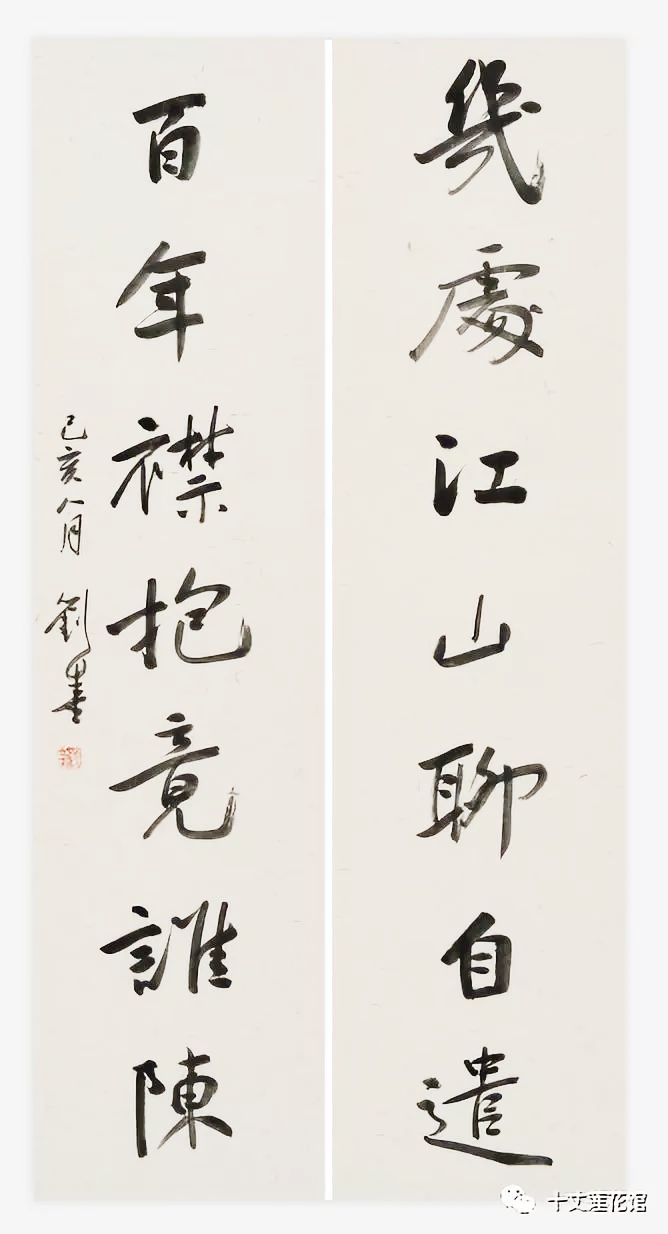 幾處江山聊自遣
百年襟抱竟誰陳
己亥八月 劉墨
十丈莲花馆